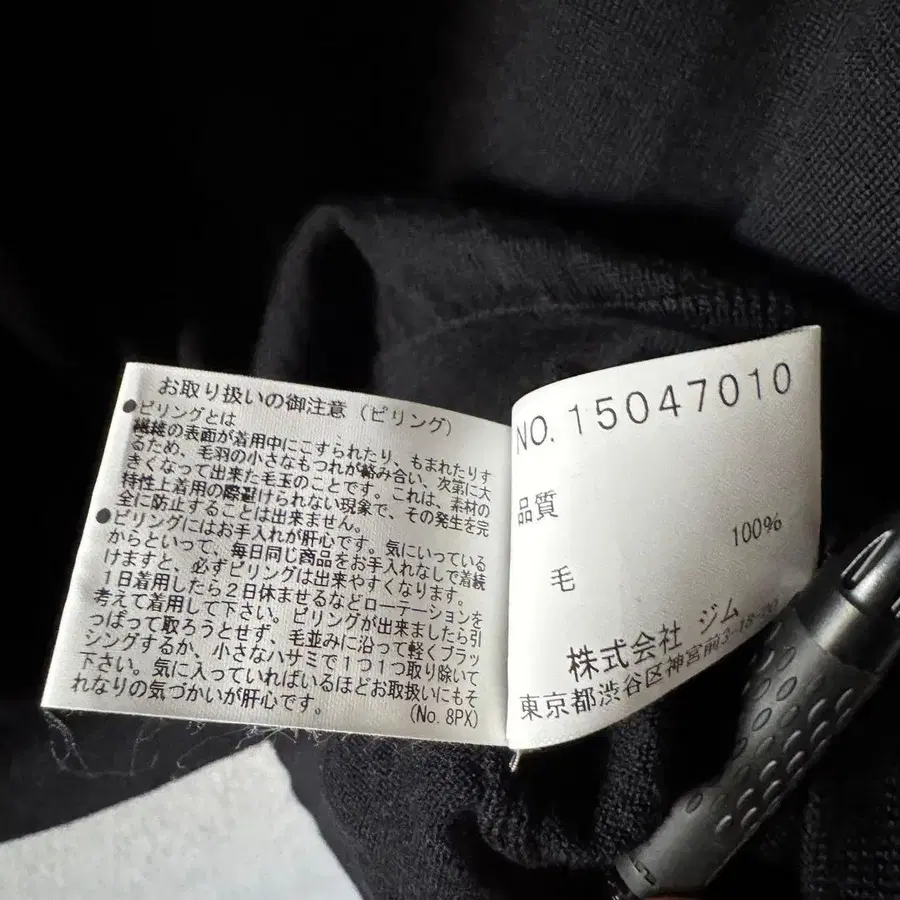 お取り扱いの御注意（ピリング）
●ピリングとは
繊維の表面が着用中にこすられたり、もまれたりす
るため、毛羽の小さなもつれが絡み合い、次第に大
きくなって出来た毛玉のことです。これは、素材の
特性上着用の際避けられない現象で、その発生を完
全に防止することは出来ません。
●ピリングにはお手入れが肝心です。気にいっている
からといって、毎日同じ商品をお手入れなしで着続
けますと、必ずピリングは出来やすくなります。
1日着用したら2日休ませるなどローテーションを
考えて着用して下さい。ピリングが出来ましたら引
っぱって取ろうとせず、毛並みに沿って軽くブラッ
シングするか、小さなハサミで1つ1つ取り除いて
下さい。気に入っていればいるほどお取扱いにもそ
れなりの気づかいが肝心です。
(No. 8PX)
NO. 15047010
品質
100%
毛
株式会社 ジム
東京都渋谷区神宮前3-18-20